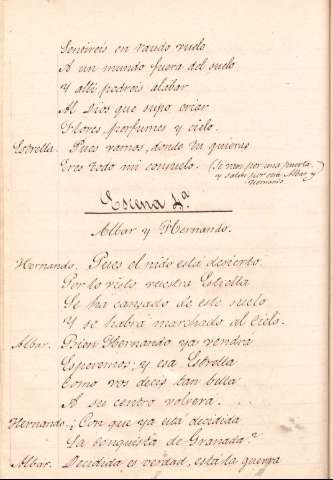 Sentireis en raudo vuelo
A un mundo fuera del suelo
Y allí podreis alabar
Al Dios que supo criar
Flores, perfumes y cielo.
Estrella. Pues vamos, donde tu quieras
Eres todo mi consuelo. (Se van por una puerta y salen por otra Albar y Hernando)
Escena 4ª
Albar y Hernando.
Hernando. Pues el nido está desierto.
Por lo visto vuestra Estrella
Se ha cansado de este suelo
Y se habrá marchado al Cielo.
Albar. Bien Hernando ya vendra
Esperemos; y esa Estrella
Como vos decis tan bella
A su centro volverá.
Hernando. ¿Con que ya está decidida
La conquista de Granada?
Albar. Decidida, es verdad, está la guerra